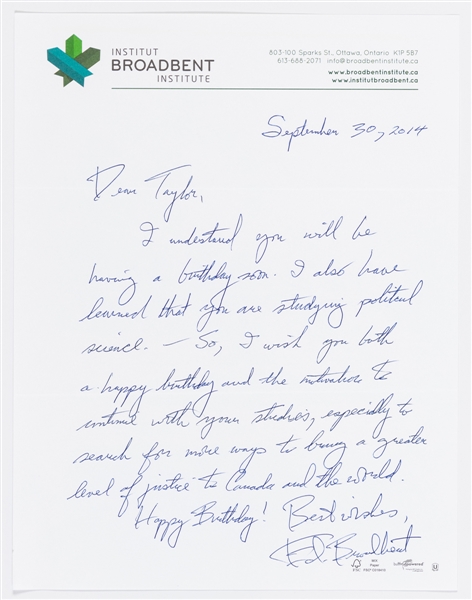 INSTITUT
BROADBENT
INSTITUTE
803-100 Sparks St., Ottawa, Ontario K1P 5B7
613-688-2071 info@broadbentinstitute.ca
www.broadbentinstitute.ca
www.institutbroadbent.ca
September 30, 2014
Dear Taylor,
I understand you will be
having a birthday soon. I also have
learned that you are studying political
science. – So, I wish you both
a happy birthday and the motivation to
continue with your studies, especially to
search for more ways to bring a greater
level of justice to Canada and the world.
Happy Birthday! Best wishes,
Ed Broadbent
FSC
MIX
Paper